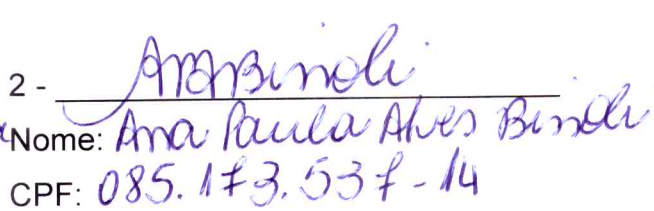 2 - APABinoli
Nome: Ana Paula Alves Binoli
CPF: 085.173.537-14